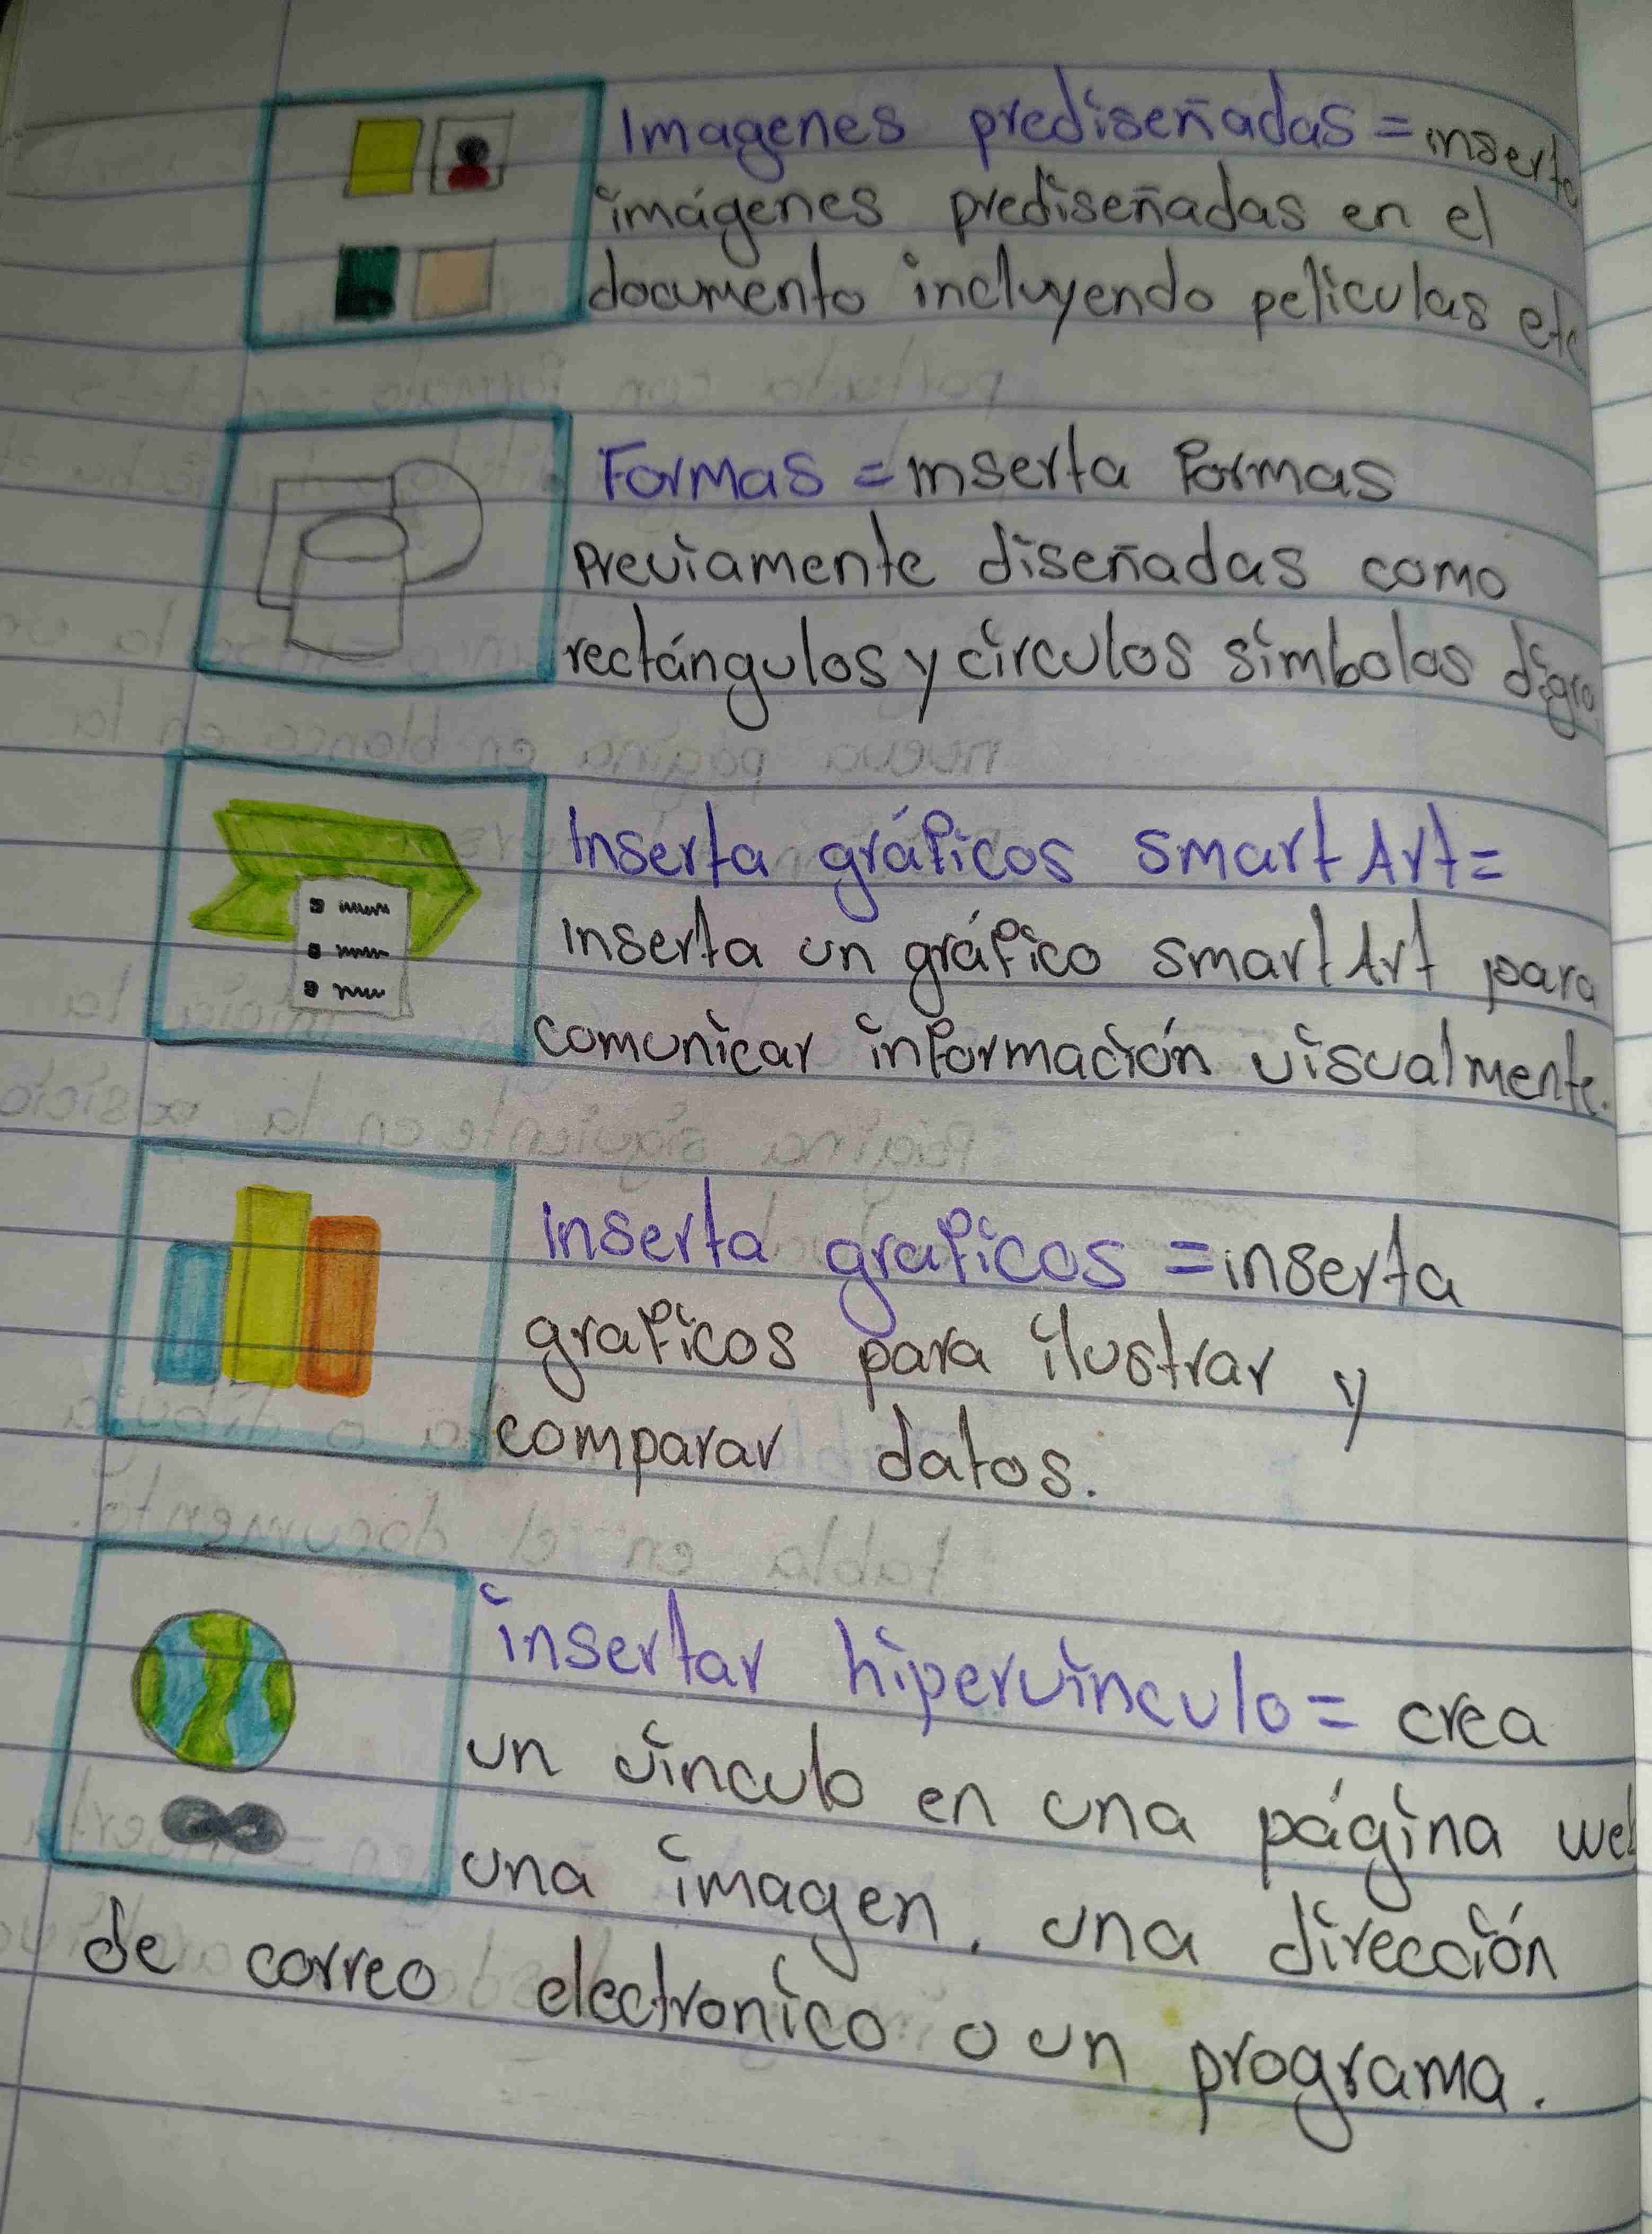 Imagenes prediseñadas = inserta
imágenes prediseñadas en el
documento incluyendo peliculas etc
Formas = inserta formas
previamente diseñadas como
rectángulos y circulos simbolos
Inserta gráficos smart Art =
inserta un gráfico smart Art para
comunicar información visualmente.
inserta graficos = inserta
graficos para ilustrar y
comparar datos.
insertar hipervinculo = crea
un vinculo en una página web
una imagen, una dirección
de correo electronico o un programa.